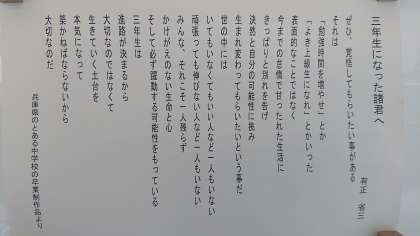 三年生になった諸君へ
有正 省三
ぜひ、覚悟してもらいたい事がある
それは
「勉強時間を増やせ」とか
「よき上級生になれ」とかいった
表面的なことではなく
今までの怠惰で甘ったれた生活に
きっぱりと別れを告げ
決然と自分の可能性に挑み
生まれ変わってもらいたいという事だ
世の中には
いてもいなくてもいい人など一人もいない
頑張っても伸びない人など一人もいない
みんな、それこそ一人残らず
かけがえのない生命と心
そして必ず躍動する可能性をもっている
三年生は
進路が決まるから
大切なのではなくて
生きていく土台を
本気になって
築かねばならないから
大切なのだ
兵庫県のとある中学校の卒業制作品より